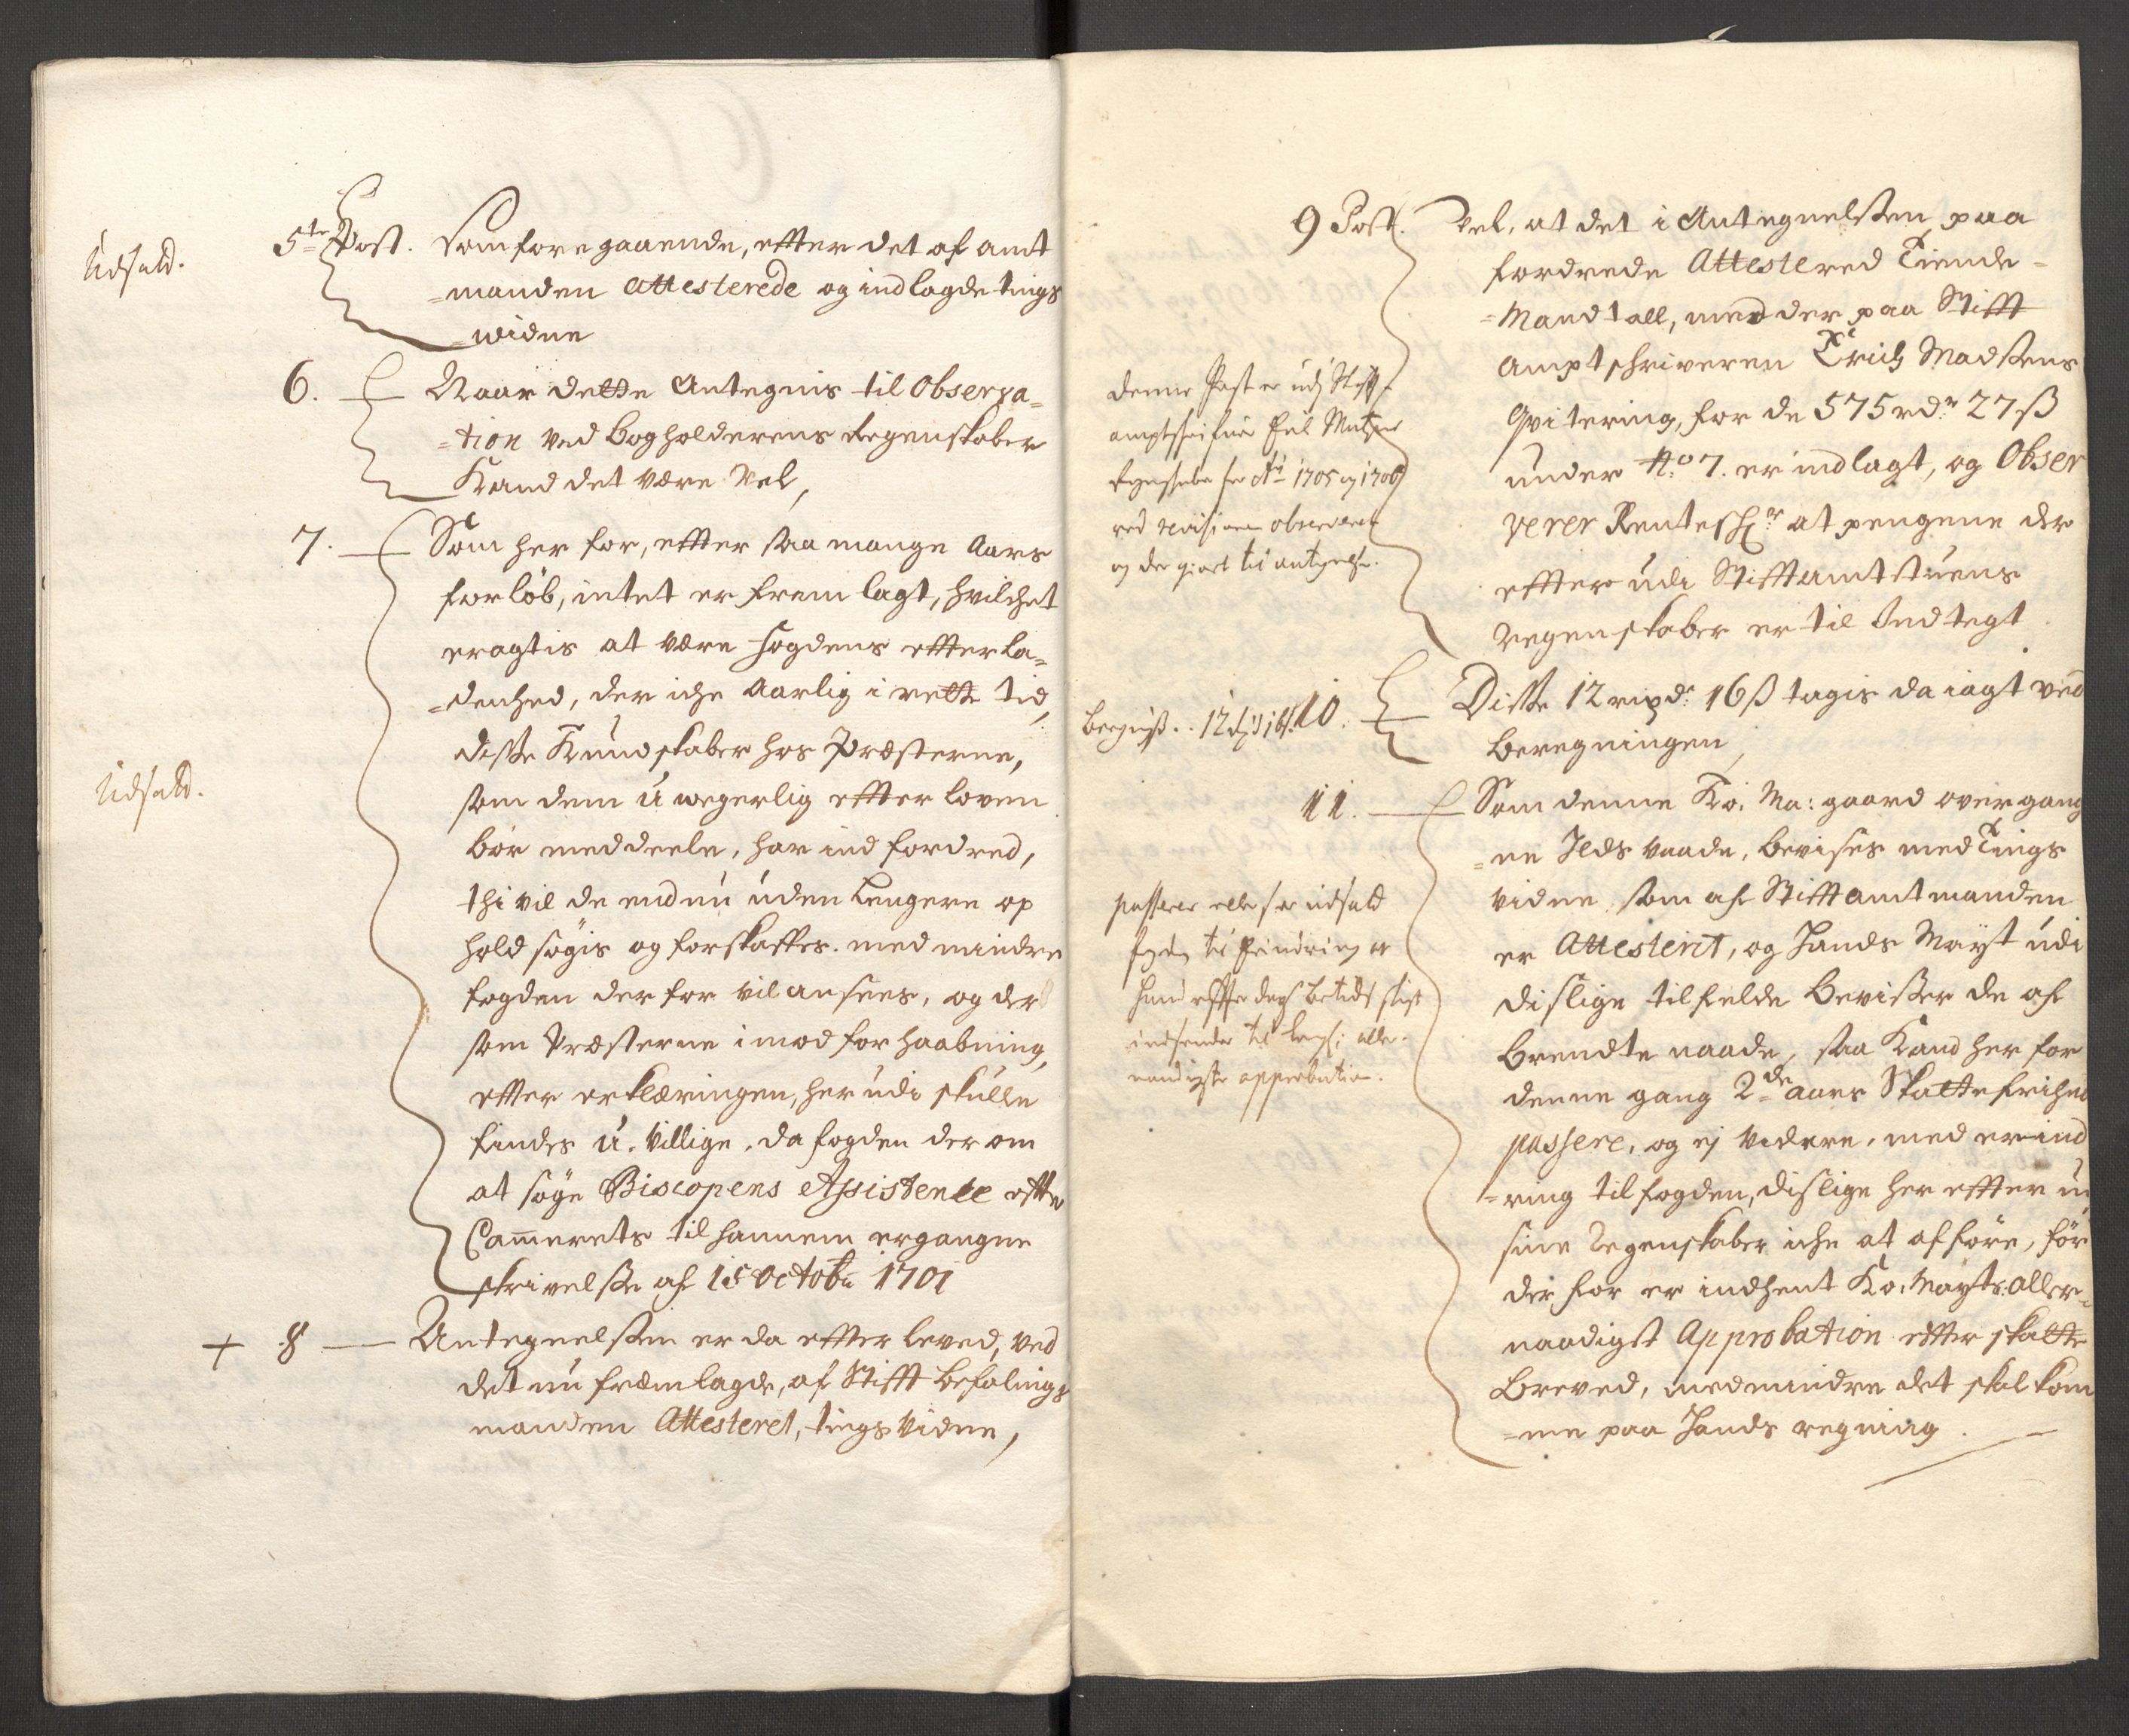 Udsatt.
5te Post. Som foregaaende, efter det af amt
=manden attesterede og indlagde tings
=widne
6. Naar dette Antegnis til Observa=
=tion ved Bogholderens Regenskaber
Kand det være Vel,
7. Som her for, efter saa mange Aars
forløb, intet er frem lagt, hvilchet
eragtis at være fogdens efterla=
=denhed, der iche Aarlig i rette tid,
disse Kundskaber hos Præsterne,
Udsatt.
som dem u wegerlig efter loven
bør meddeele, har ind fordred,
thi vil de end nu uden lengere op
hold søgis og forskaffes. med mindre
fogden der for vil ansees, og der
som Præsterne imod forhaabning,
efter erklæringen, her udi skulle
findes u. villige. da fogden der om
at søge Biscopens Assistence efter
Cammerets til hannem ergangne
skrivelsse af 15 Octobr 1701
+ 8 Antegnelssen er da efter leved, ved
det nu fremlagde, af Stift befalings
manden Attesteret, tings vidne,
9 Post. Vel, at det i Antegnelssen paa
fordrede Attestered Tiende=
=Mandtall, med der paa Stift
amptschriveren Erich Madsens
Qvitering, for de 575 rdr 27 ß
under No 7. er indlagt, og Obser
verer Renteschr at pengene der
effter udi Stiftamtstuens
Regenskaber er til Indtegt
denne Post er udj Stift
amptschrifuer Pål
Regenskaber for Ao 1705 og 1706
ved revisionen observeret
og der giort til antegnelse.
10. Disse 12 rixdr 16 ß tagis da iagt ved
Beregningen,
11. Som denne Ko. Ma: gaard overgang
=ne Ilds vaade, bevises med Tings
vidne som af Stiftamtmanden
er Attesterit, og Hands Mayt udi
dislige tilfelde beviser de af
brendte naade, saa kand her for
denne gang 2de aars Skattefrihed
passere, og ej videre, med erind
=ring til fogden, dislige her effter u
sine Regenskaber iche at afføre, før
der for er indhent Ko. Mayts: aller=
naadigst Approbation effter skatte
breved, med mindre det skal kom
=me paa Hands regning.
passerer eller for udsatt
fogden til
hand effter
indsender til aller
naadigste approbation.